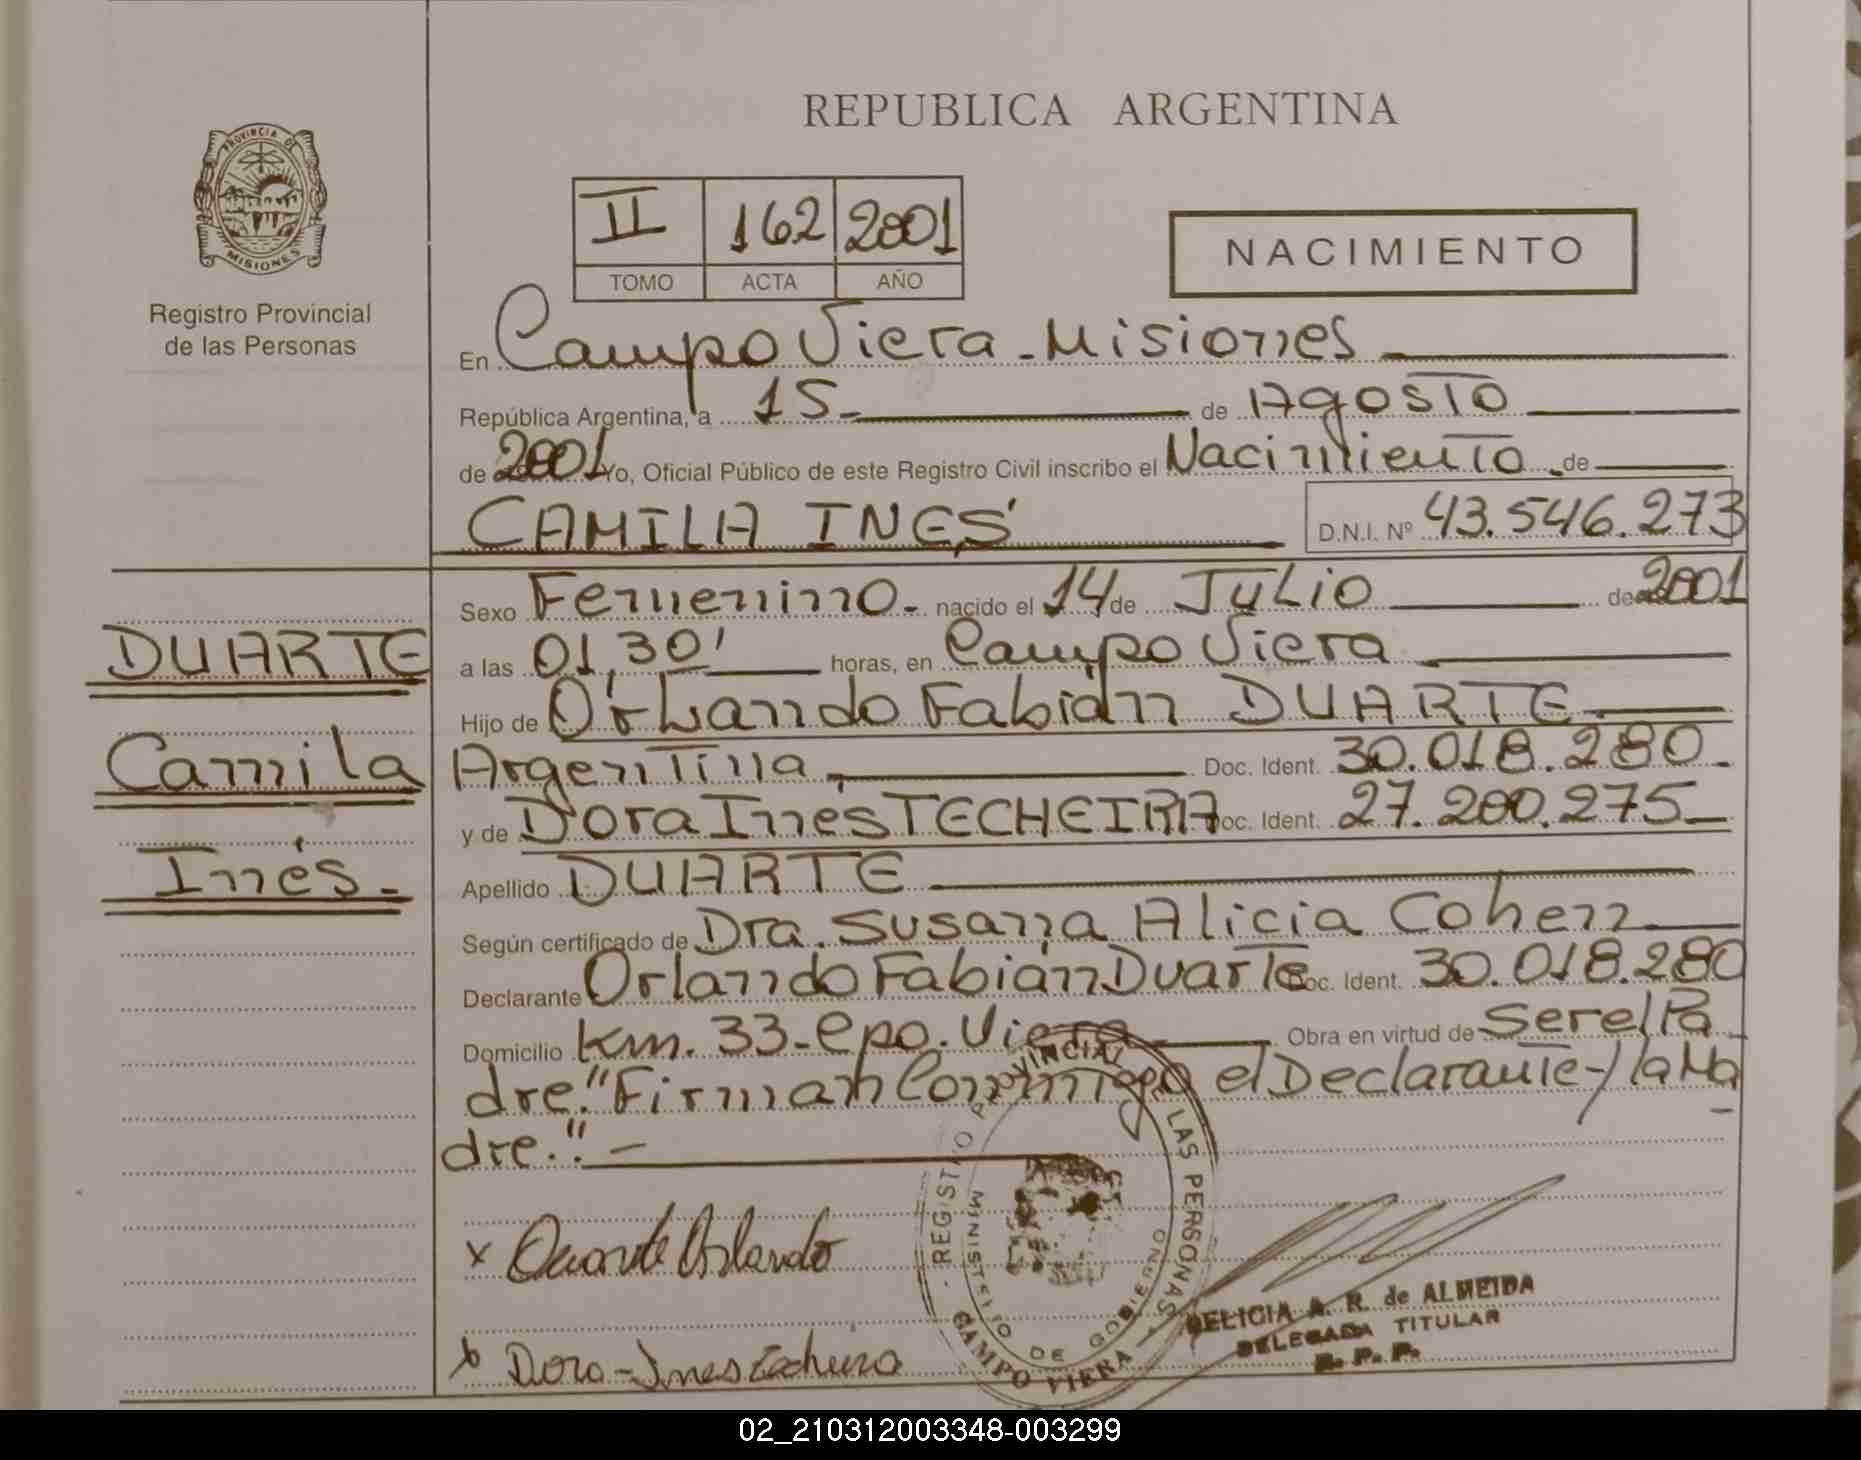 REPUBLICA ARGENTINA
PROVINCIA DE
MISIONES
Registro Provincial
de las Personas
II 162 2001
TOMO ACTA AÑO
NACIMIENTO
En Campo Viera - Misiones
República Argentina, a 15 - de Agosto
de 2001 Yo, Oficial Público de este Registro Civil inscribo el Nacimiento de
CAMILA INÉS D.N.I. Nº 43.546.273
Sexo Femenino - nacido el 14 de Julio de 2001
a las 01,30' horas, en Campo Viera
Hijo de Orlando Fabián DUARTE
Argentina, Doc. Ident. 30.018.280 -
y de Dora Inés TECHEIRA Doc. Ident. 27.200.275 -
Apellido DUARTE
Según certificado de Dra. Susana Alicia Cohen
Declarante Orlando Fabián Duarte Doc. Ident. 30.018.280
Domicilio Km. 33 - Cpo. Viera Obra en virtud de Ser el Pa
dre." Firman Conmigo el Declarante - y la Ma
dre." -
DUARTE
Camila
Inés -
x Duarte Orlando
x Dora - Ines Techeira
REGISTRO PROVINCIAL DE LAS PERSONAS
MINISTERIO DE GOBIERNO
CAMPO VIERA
DELICIA A. R. de ALMEIDA
DELEGADA TITULAR
R. P. P.
02_210312003348-003299